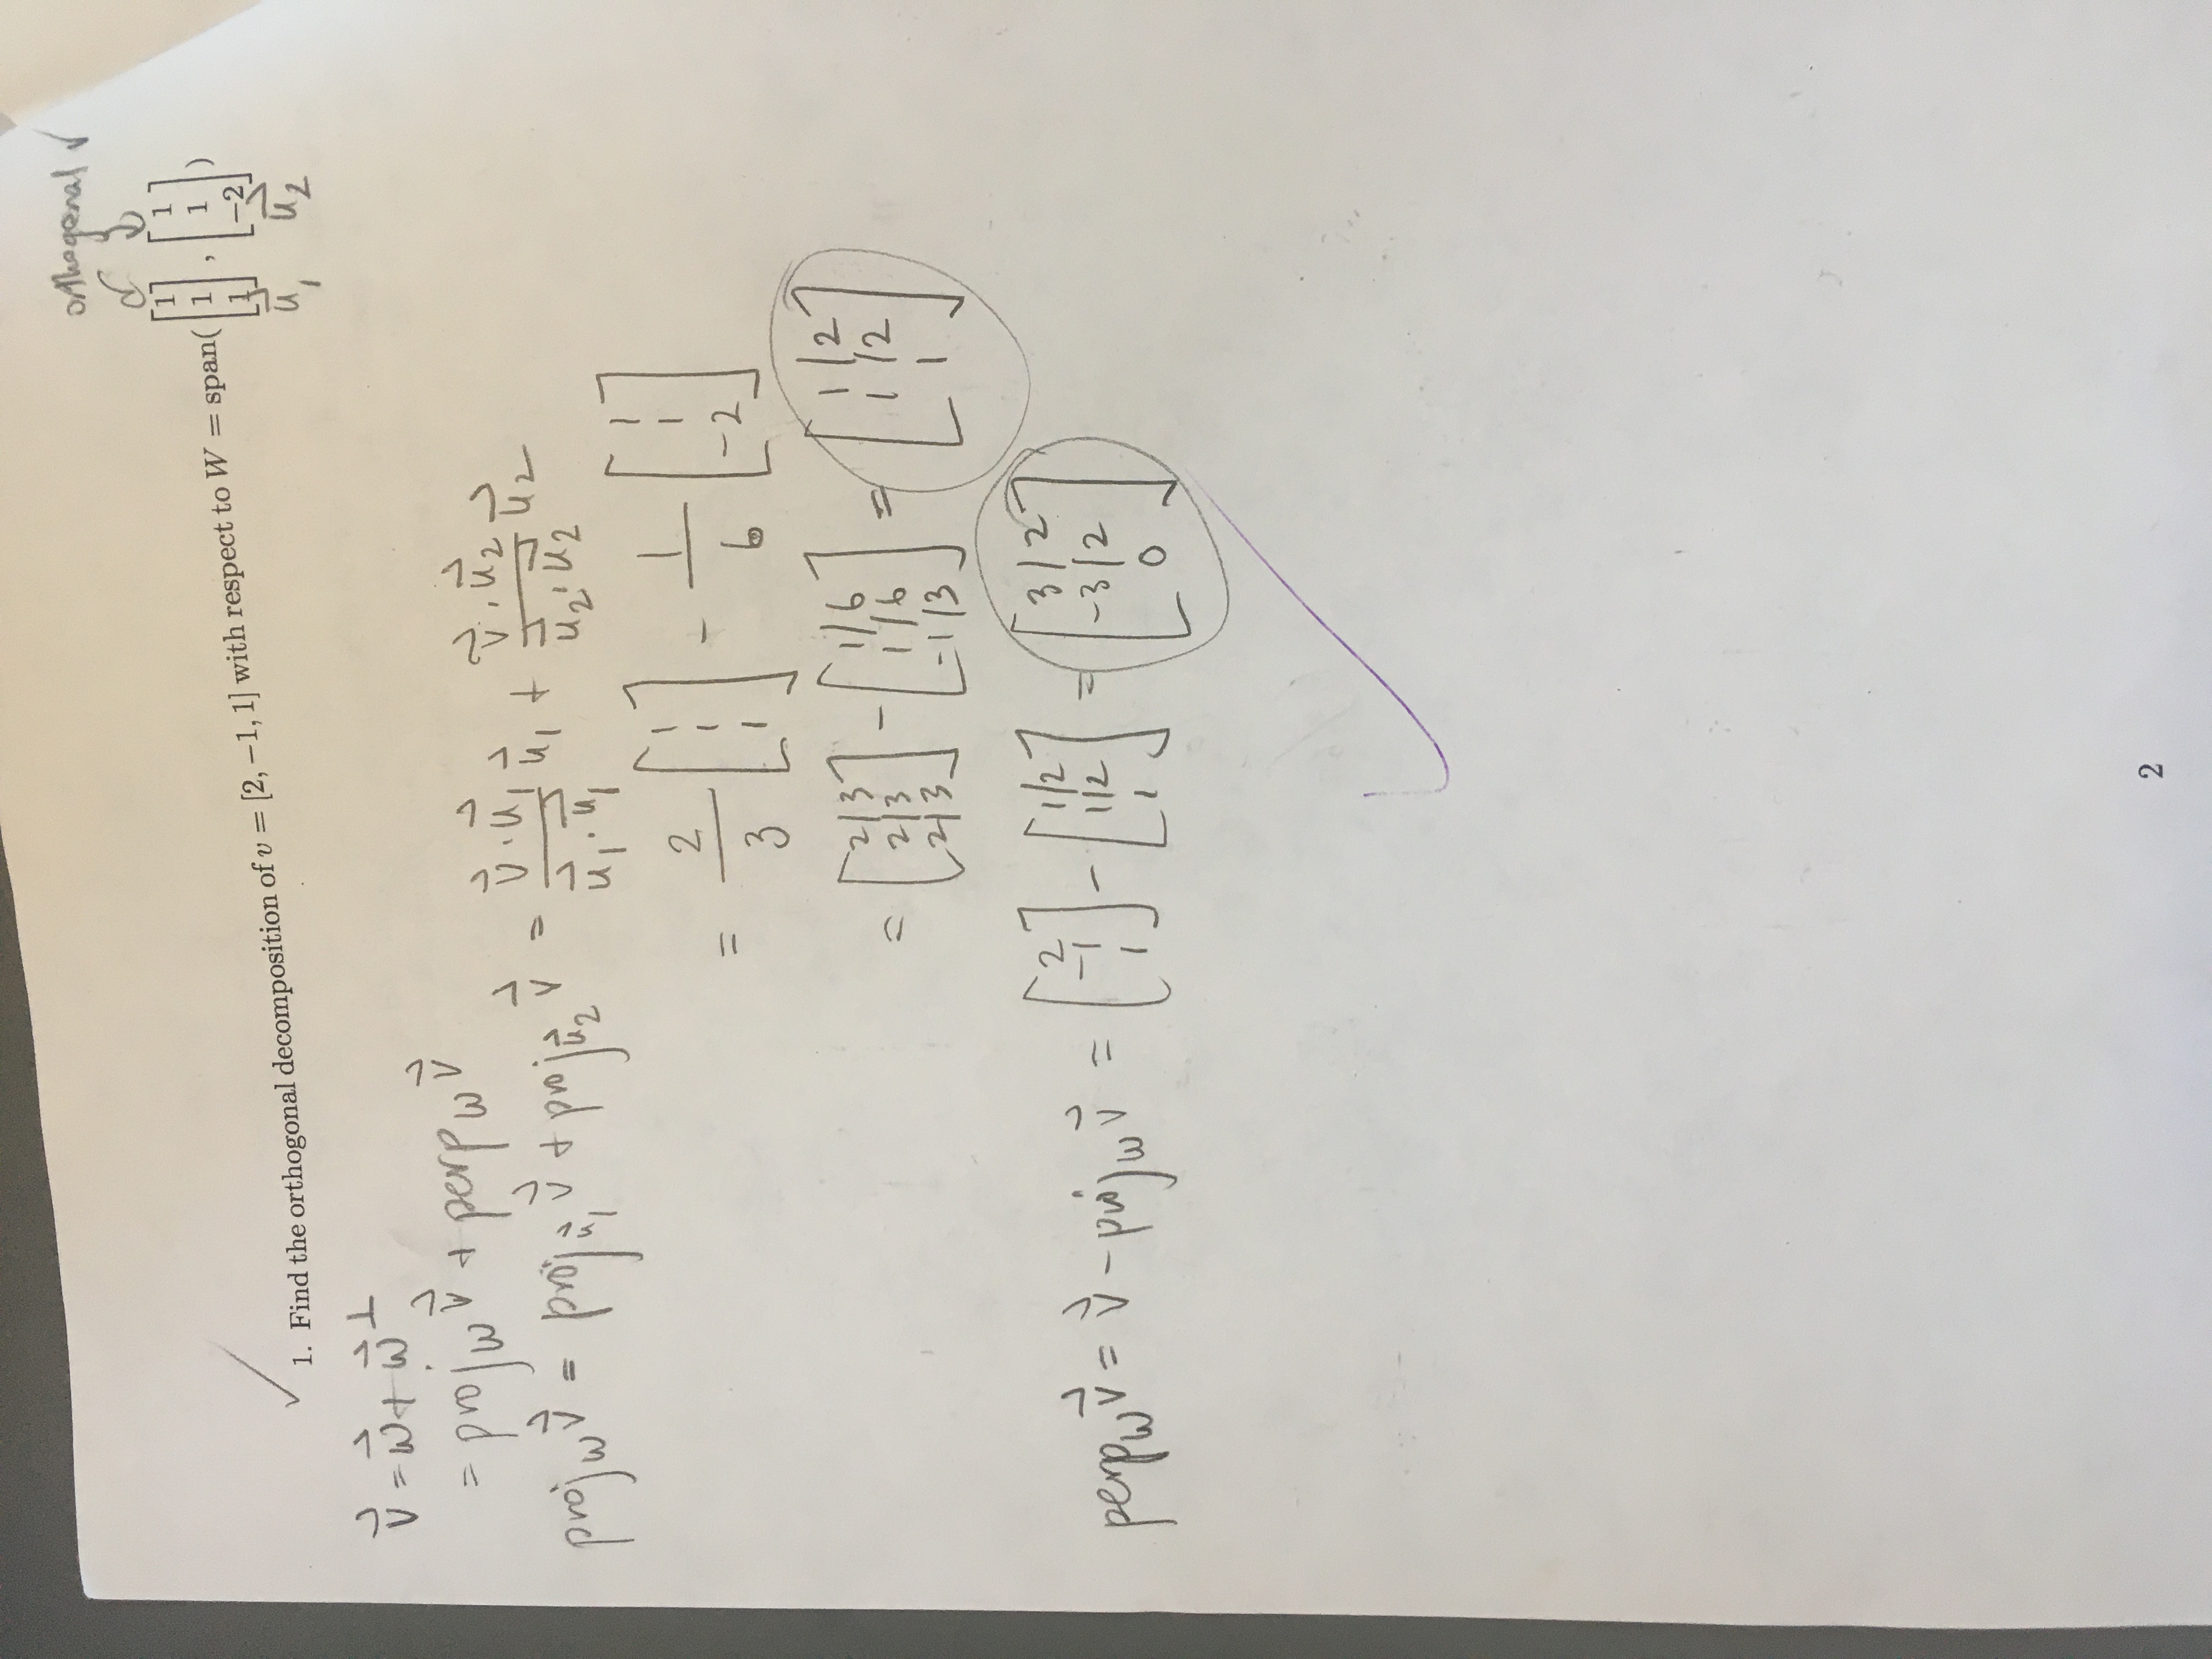 orthogonal ✓
1. Find the orthogonal decomposition of v = [2, −1, 1] with respect to W = span( [1 1 1] , [1 1 −2] )
u⃗₁ u⃗₂
v⃗ = w⃗ + w⃗^⊥
= proj_W v⃗ + perp_W v⃗
proj_W v⃗ = proj_u⃗₁ v⃗ + proj_u⃗₂ v⃗ = (v⃗ · u⃗₁)/(u⃗₁ · u⃗₁) u⃗₁ + (v⃗ · u⃗₂)/(u⃗₂ · u⃗₂) u⃗₂
= 2/3 [1 1 1] − 1/6 [1 1 −2]
= [2/3 2/3 2/3] − [1/6 1/6 −1/3] = [1/2 1/2 1]
perp_W v⃗ = v⃗ − proj_W v⃗ = [2 −1 1] − [1/2 1/2 1] = [3/2 −3/2 0]
2